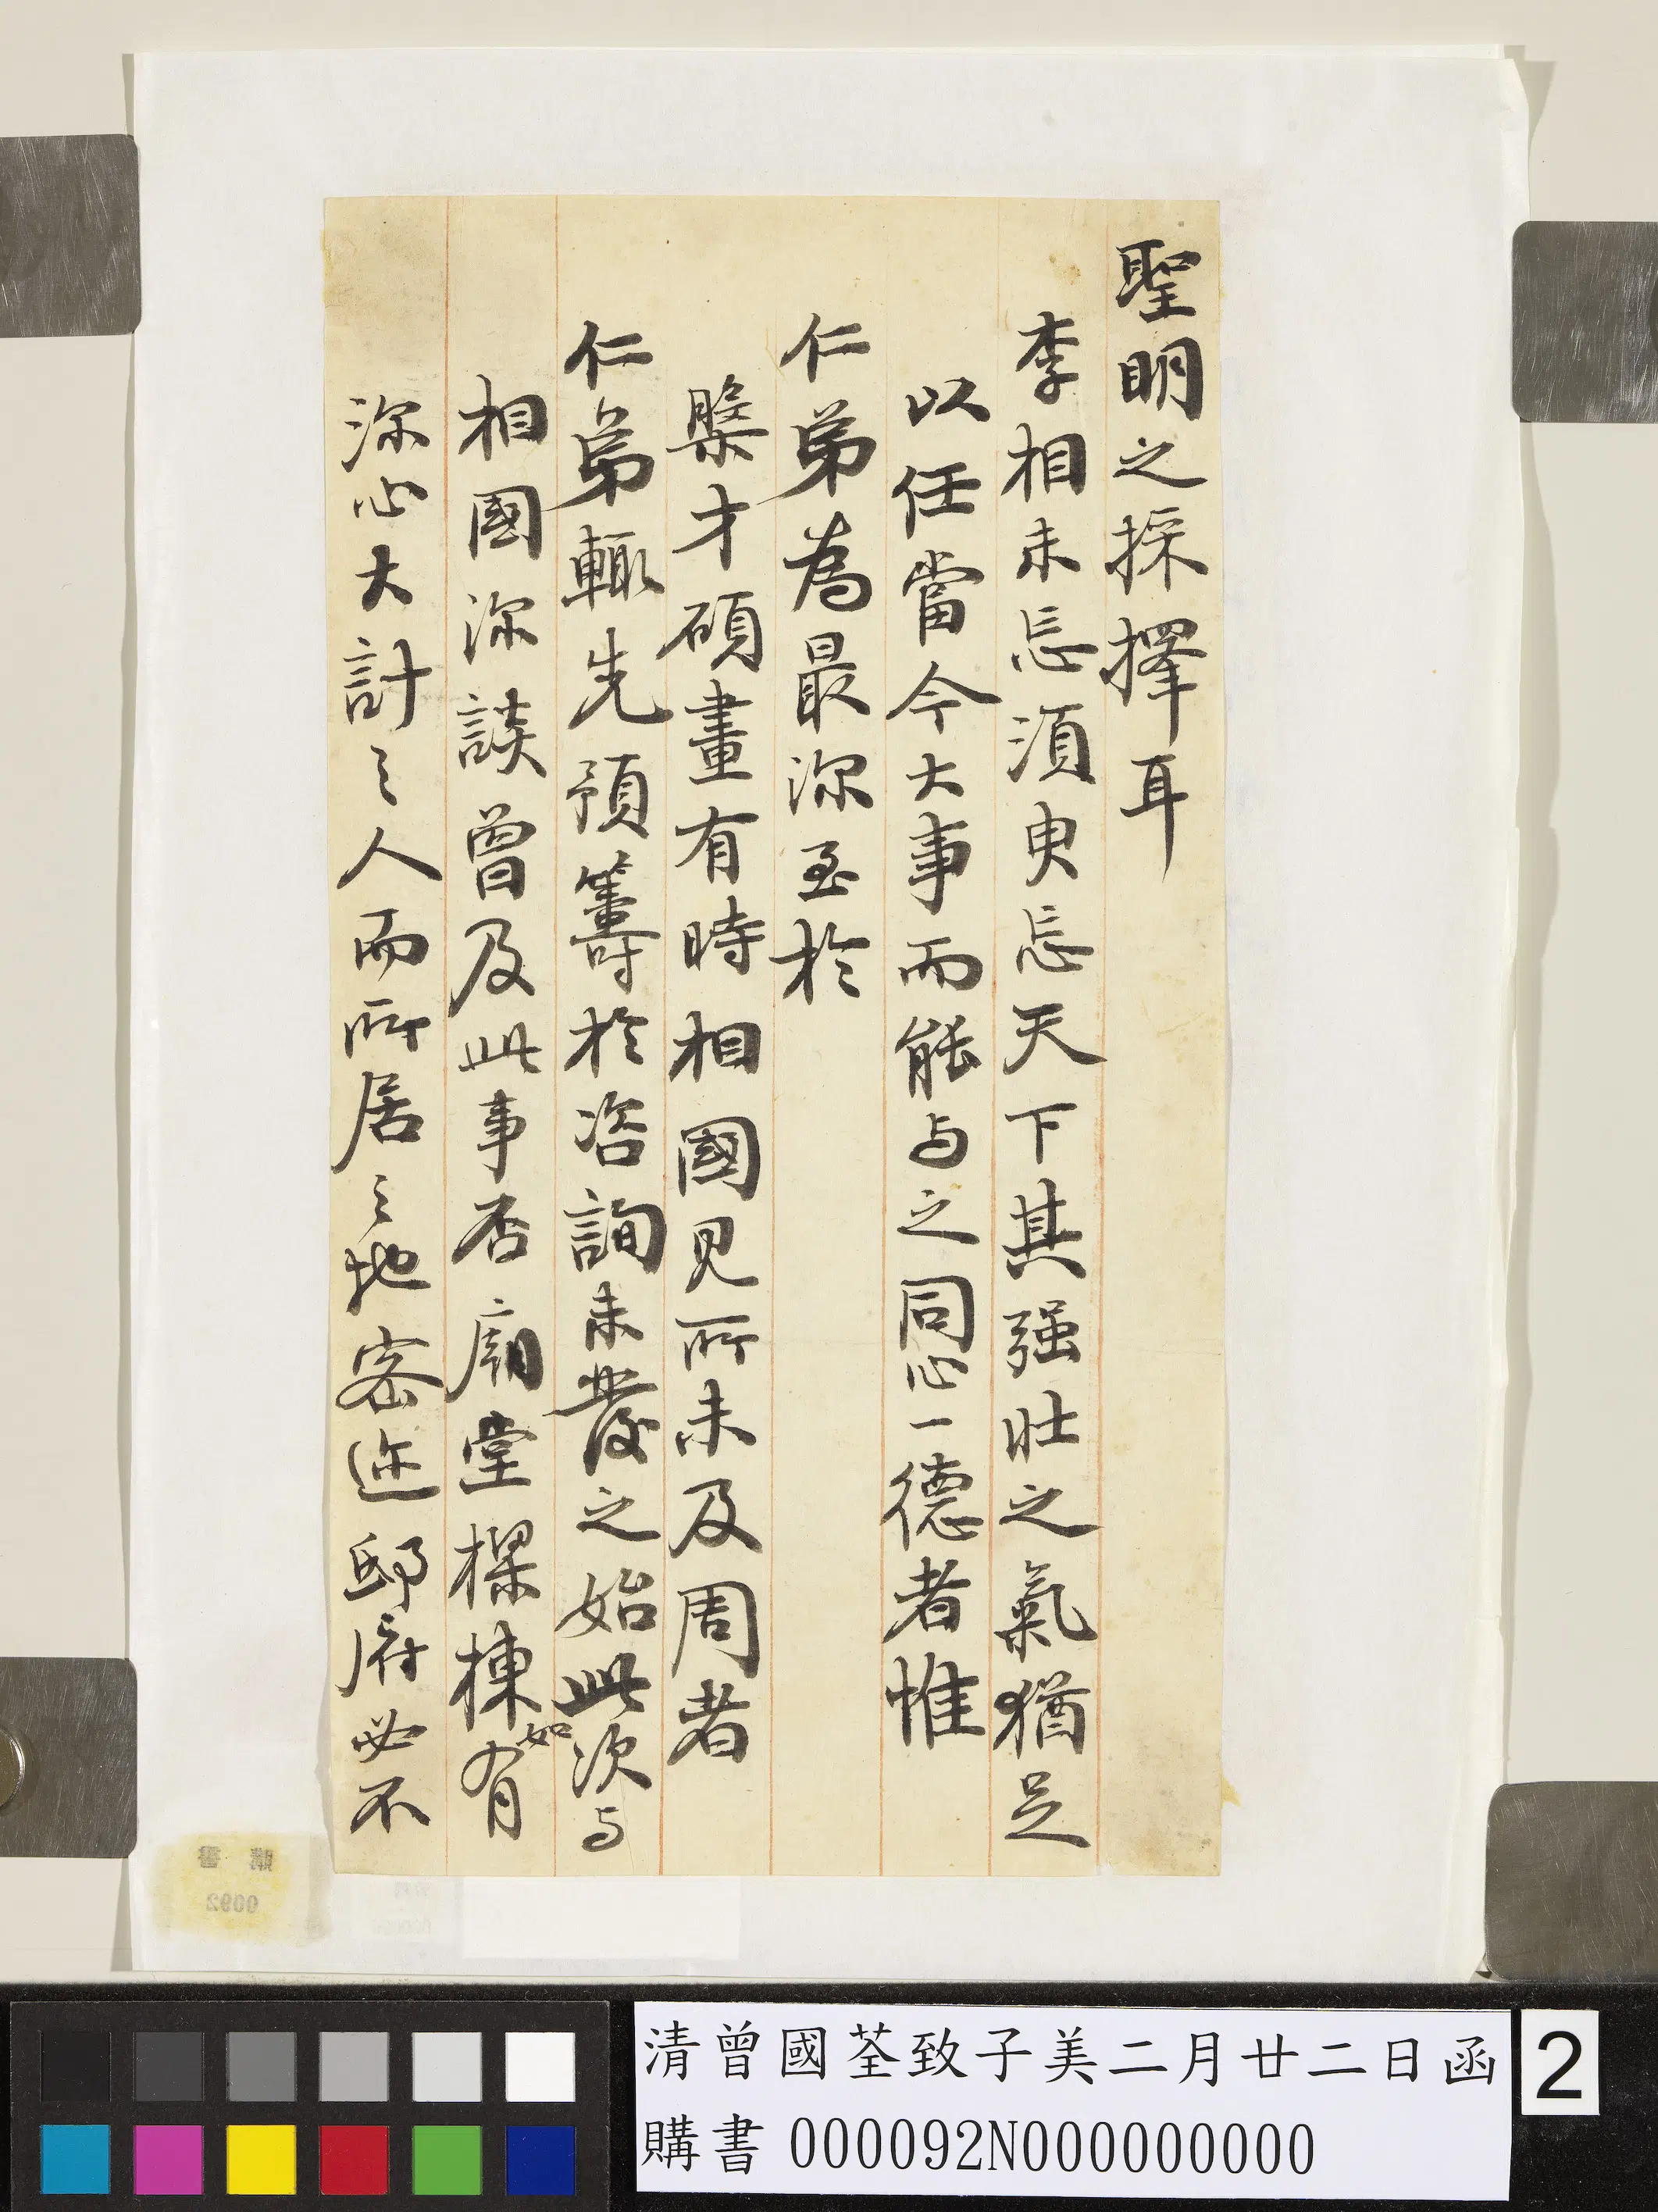 聖明之採擇耳
李相未忘須臾忘天下其强壯之氣猶足
以任當今大事而能与之同心一德者惟
仁弟為最深至於
槃才碩畫有時相國見所未及周者
仁弟輒先預籌於咨詢未發之始此次与
相國深談曾及此事否廟堂樑棟如有
深心大計之人而所居之地密迩邸府必不
購書
0092
清曾國荃致子美二月廿二日函
購書 000092N000000000
2